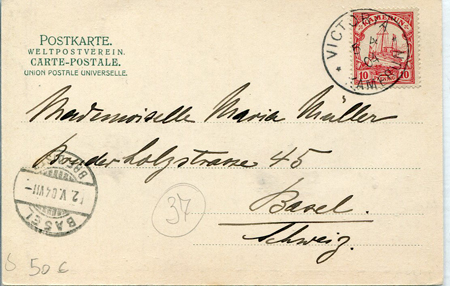 POSTKARTE.
WELTPOSTVEREIN.
CARTE-POSTALE.
UNION POSTALE UNIVERSELLE.
KAMERUN
10 10
VICTORIA
KAMERUN
Mademoiselle Maria Müller
Bruderholzstrasse 45
Basel.
Schweiz.
BASEL
12.V.04.VII-
37
50 €